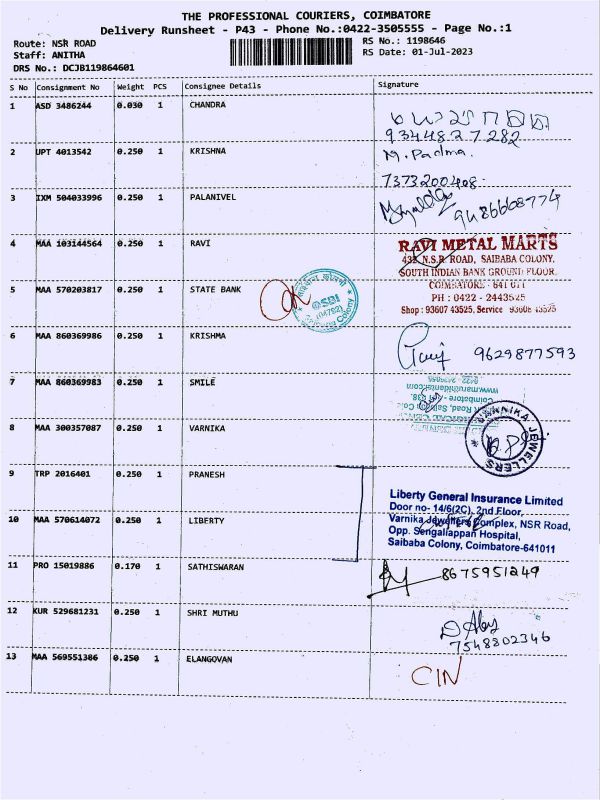 THE PROFESSIONAL COURIERS, COIMBATORE
Delivery Runsheet - P43 - Phone No.:0422-3505555 - Page No.:1
Route: NSR ROAD RS No.: 1198646
Staff: ANITHA RS Date: 01-Jul-2023
DRS No.: DCJB119864601
S No Consignment No Weight PCS Consignee Details Signature
1 ASD 3486244 0.030 1 CHANDRA
9344827282
2 UPT 4013542 0.250 1 KRISHNA M. Padma
7373200408
3 IXM 504033996 0.250 1 PALANIVEL 9486608774
4 MAA 103144564 0.250 1 RAVI RAVI METAL MARTS
432, N.S.R. ROAD, SAIBABA COLONY,
SOUTH INDIAN BANK GROUND FLOOR,
COIMBATORE - 641 011
5 MAA 570203817 0.250 1 STATE BANK SBI (04792) Saibaba Colony
PH : 0422 - 2443525
Shop : 93607 43525, Service 93608 43525
6 MAA 860369986 0.250 1 KRISHMA 9629877593
7 MAA 860369983 0.250 1 SMILE
8 MAA 300357087 0.250 1 VARNIKA VARNIKA JEWELLERS
9 TRP 2016401 0.250 1 PRANESH
10 MAA 570614072 0.250 1 LIBERTY Liberty General Insurance Limited
Door no- 14/6(2C), 2nd Floor,
Varnika Jewellers Complex, NSR Road,
Opp. Sengaliappan Hospital,
Saibaba Colony, Coimbatore-641011
11 PRO 15019886 0.170 1 SATHISWARAN 8675951249
12 KUR 529681231 0.250 1 SHRI MUTHU
7548802346
13 MAA 569551386 0.250 1 ELANGOVAN CIN